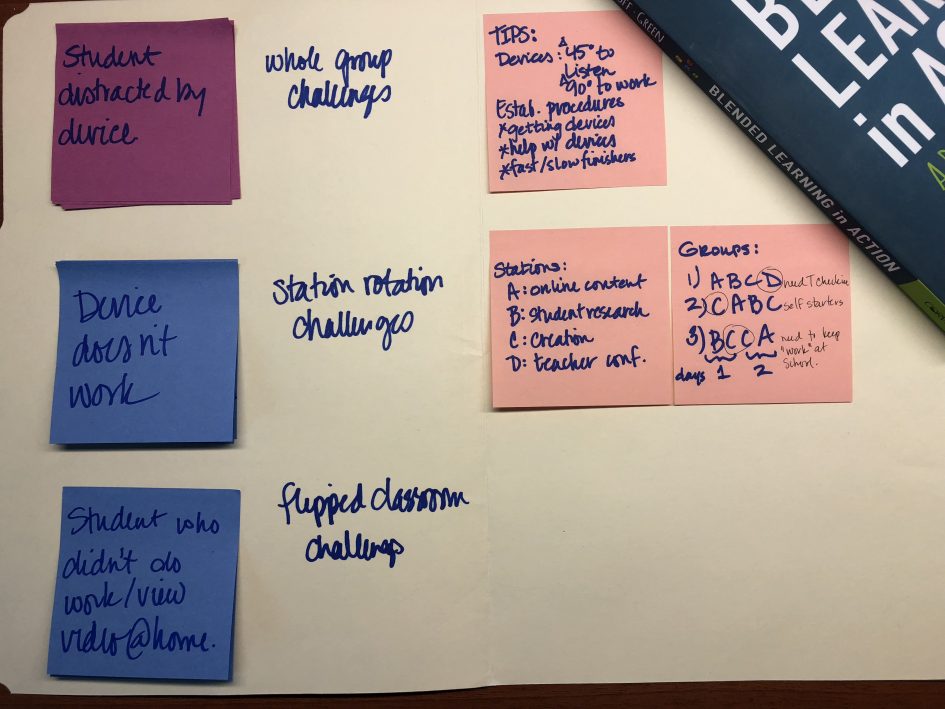 Student
distracted by
device.
whole group
challenges
TIPS:
Devices: 45° to
Listen
90° to work
Estab. procedures
*getting devices
*help w/ devices
*fast/slow finishers
GREEN
BLENDED LEARNING in ACTION
LEAR
in A
Device
doesn't
work
Station rotation
challenges
Stations:
A: online content
B: student research
C: Creation
D: teacher conf.
Groups:
1) A B C D need T checkin
2) C A B C self starters
3) B C C A need to keep
"work" at
School.
days 1 2
Student who
didn't do
work/view
video@home.
flipped classroom
challenges